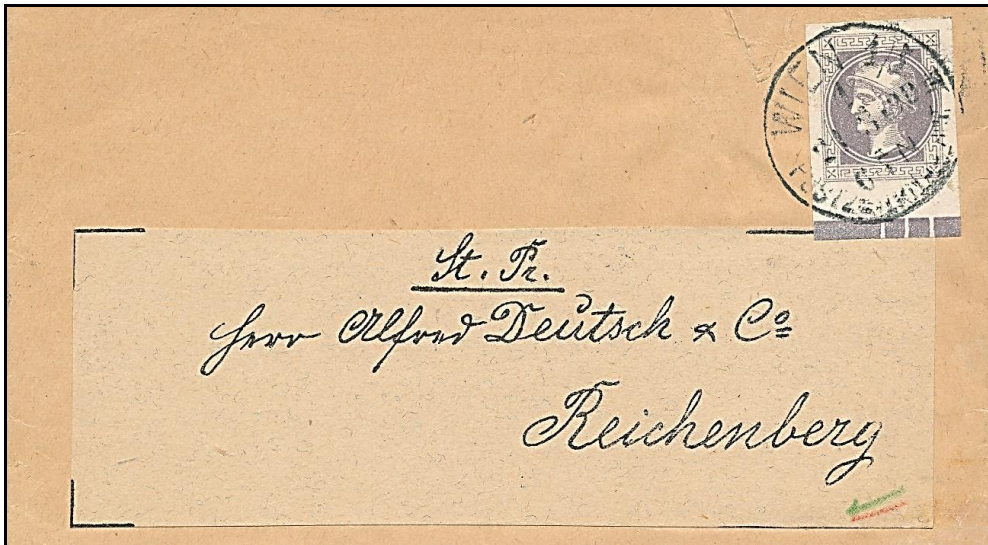 WIEN 1/1
St. Pr.
Herr Alfred Deutsch & Co
Reichenberg